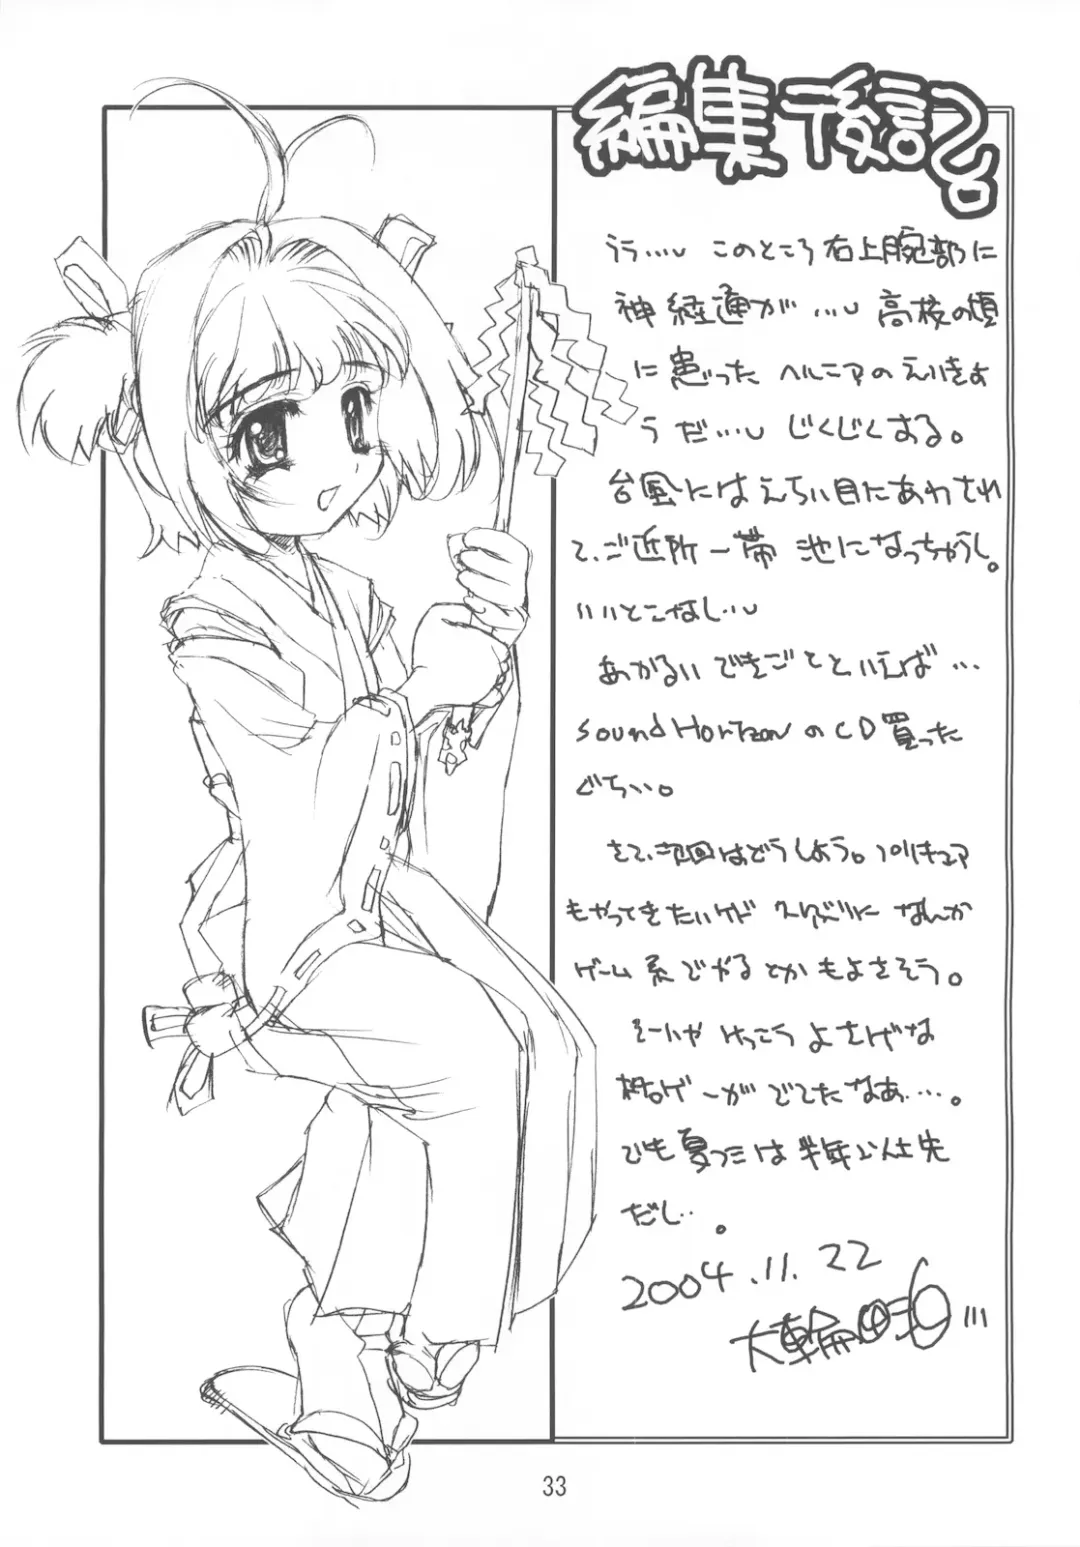 編集後記。
うう…し このところ右上腕部に
神経通が…し 高校の頃
に患った ヘルニアの えいきょ
うだ…し じくじくする。
台風にはえらい目にあわされ
て、ご近所一帯 池になっちゃうし。
いいとこなし…
あかるい できごとといえば…
Sound HorizonのCD買った
ぐらい…。
さて、次回はどうしよう。プリキュア
もやってきたいけど なんか
ゲーム系でやるとかもよさそう。
そーいや けっこう よさげな
格ゲーがでてたなあ…。
でも夏コミは半年以上先
だし…。
2004.11.22
大輪
33